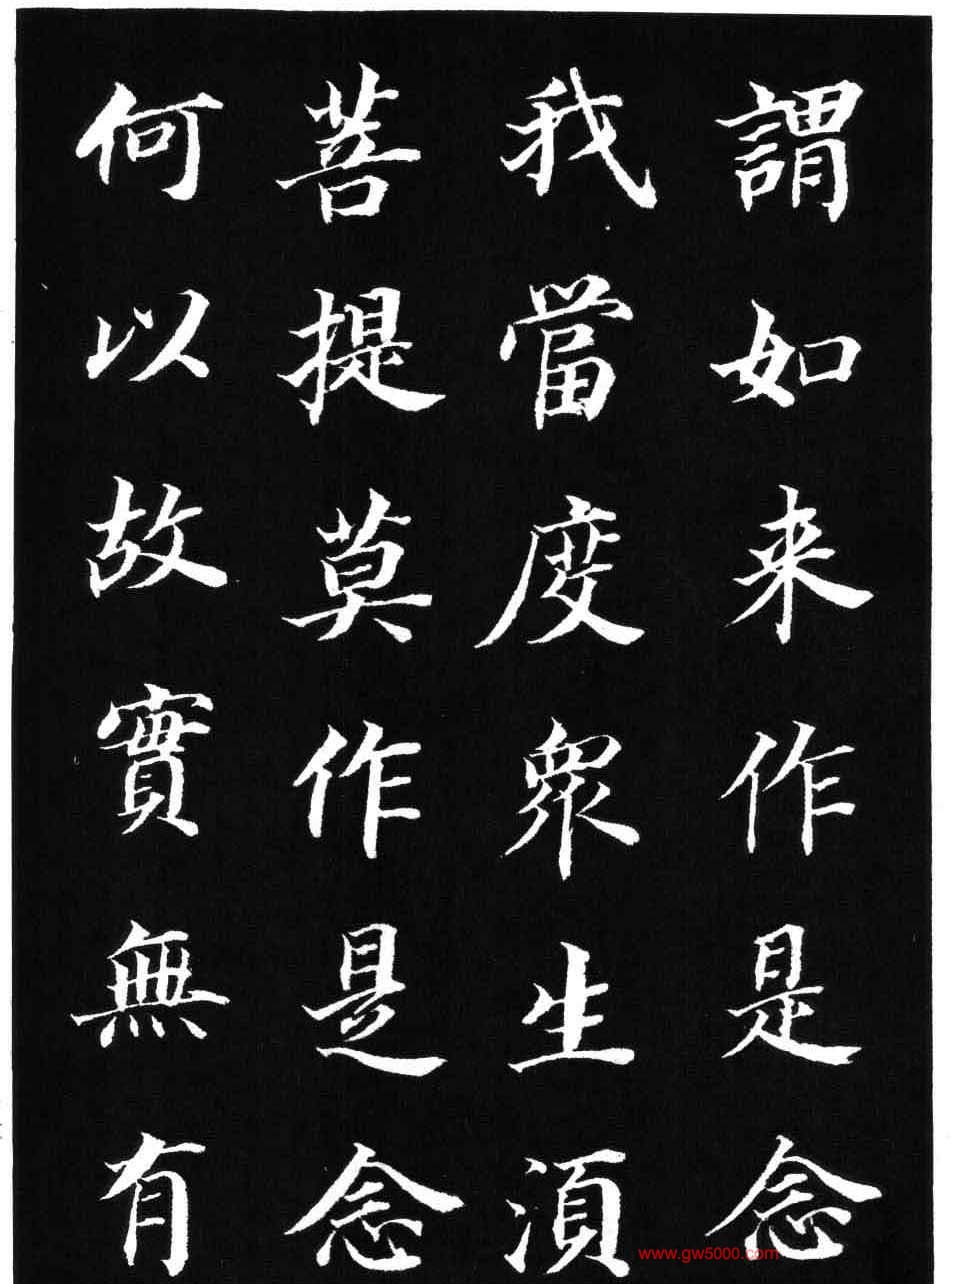 謂如来作是念
我當度衆生湏
菩提莫作是念
何以故實無有
www.gw5000.com